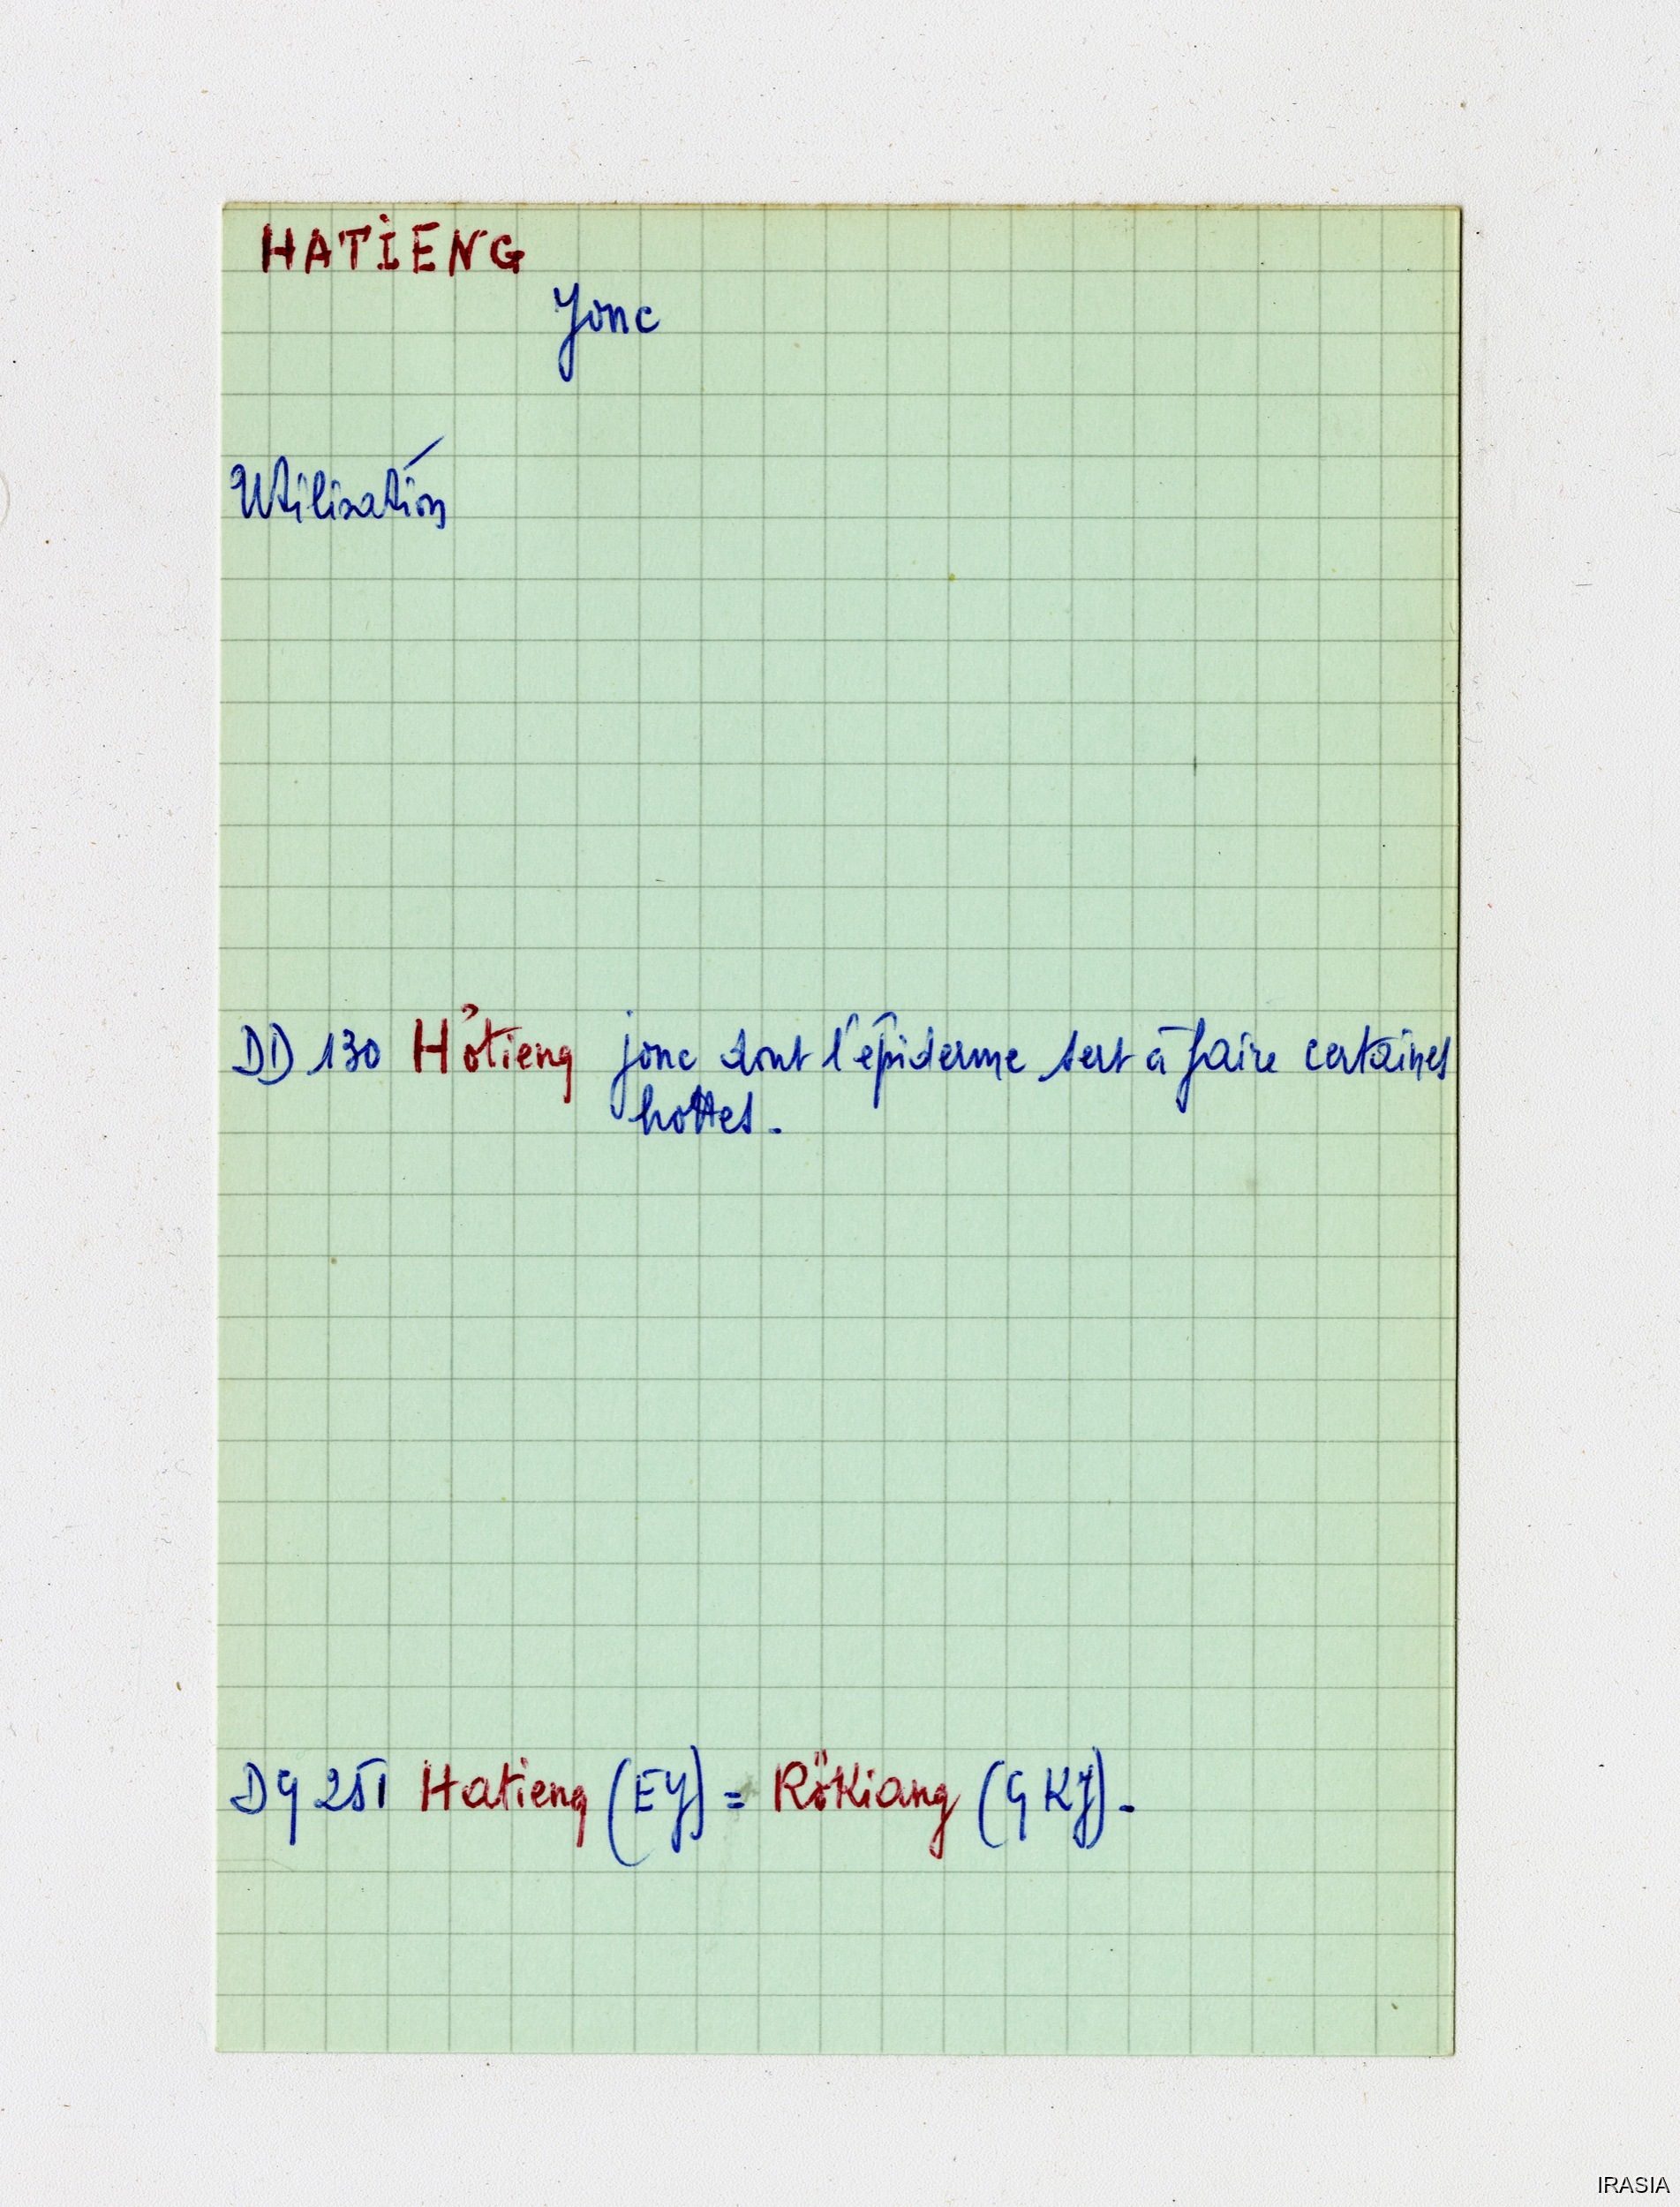 HATIENG
Jonc
Utilisation
DD 130 Hơtieng jonc dont l'épiderme sert à faire certaines
hottes.
DG 251 Hatieng (EJ) = Rökiang (GKJ).
IRASIA